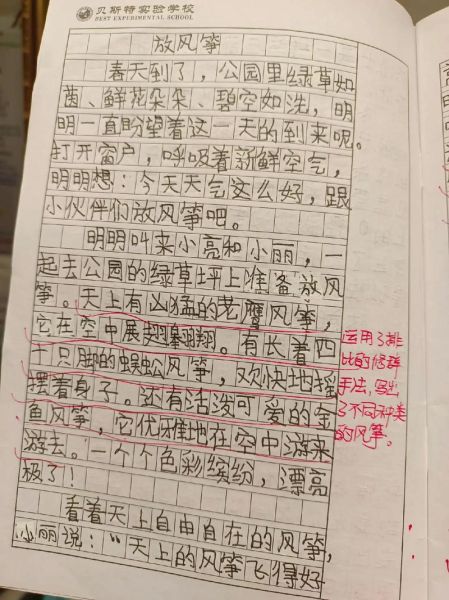 贝斯特实验学校
BEST EXPERIMENTAL SCHOOL
放风筝
春天到了，公园里绿草如
茵、鲜花朵朵、碧空如洗，明
明一直盼望着这一天的到来呢。
打开窗户，呼吸着新鲜空气，
明明想：今天天气这么好，跟
小伙伴们放风筝吧。
明明叫来小亮和小丽，一
起去公园的绿草坪上准备放风
筝。天上有凶猛的老鹰风筝，
它在空中展翅翱翔。有长着四
十只脚的蜈蚣风筝，欢快地摇
摆着身子。还有活泼可爱的金
鱼风筝，它优雅地在空中游来
游去。一个个色彩缤纷，漂亮
极了！
看着天上自由自在的风筝，
小丽说：“天上的风筝飞得好
运用了排
比的修辞
手法，写出
了不同种类
的风筝。